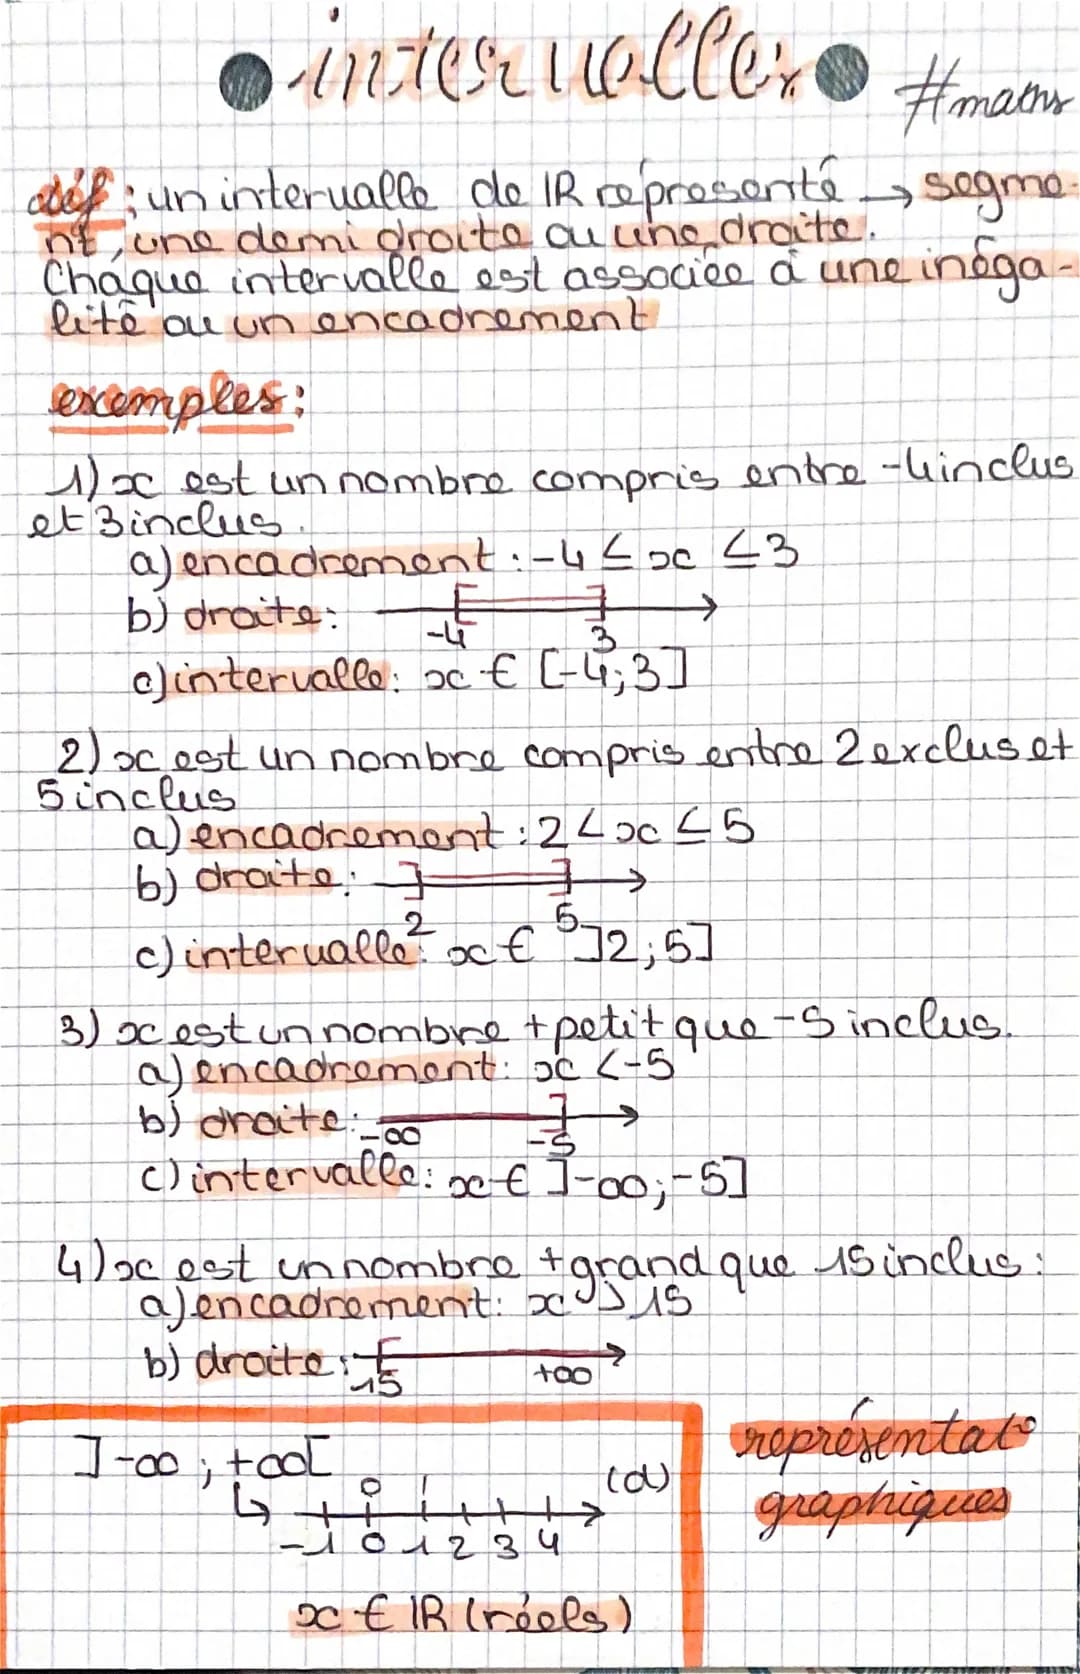 intervalles
#maths
déf : un intervalle de IR représenté → segme-
nt, une demi droite ou une droite.
Chaque intervalle est associée à une inéga-
lité ou un encadrement
exemples :
1) x est un nombre compris entre -4 inclus
et 3 inclus.
a) encadrement : -4 ≤ x ≤ 3
b) droite :
-4 3
c) intervalle : x ∈ [-4;3]
2) x est un nombre compris entre 2 exclus et
5 inclus
a) encadrement : 2 < x ≤ 5
b) droite :
2 5
c) intervalle : x ∈ ]2;5]
3) x est un nombre + petit que -5 inclus.
a) encadrement : x < -5
b) droite :
-∞ -5
c) intervalle : x ∈ ]-∞;-5]
4) x est un nombre + grand que 15 inclus :
a) encadrement : x ≥ 15
b) droite :
15 +∞
]-∞ ; +∞[
↳ 0 I (d)
-1 0 1 2 3 4
x ∈ IR (réels)
représentat°
graphiques